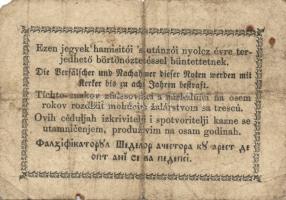 Ezen jegyek hamisitói 's utánzói nyolcz évre ter-
jedhető börtönöztetéssel büntettetnek.
Die Verfälscher und Nachahmer dieser Noten werden mit
Kerker bis zu acht Jahren bestraft.
Tíchto znakov zfalšovníci a následníci na osem
rokov rozdiži mohúcim žalárstvom sa trescú.
Ovih céduljah izkrivitelji i spotvoritelji kazne se
utamničenjem, produživim na osam godinah.
Фалзіфікаторꙋл ші
ачестора кꙋ арест де
опт ані се ва педепсі.